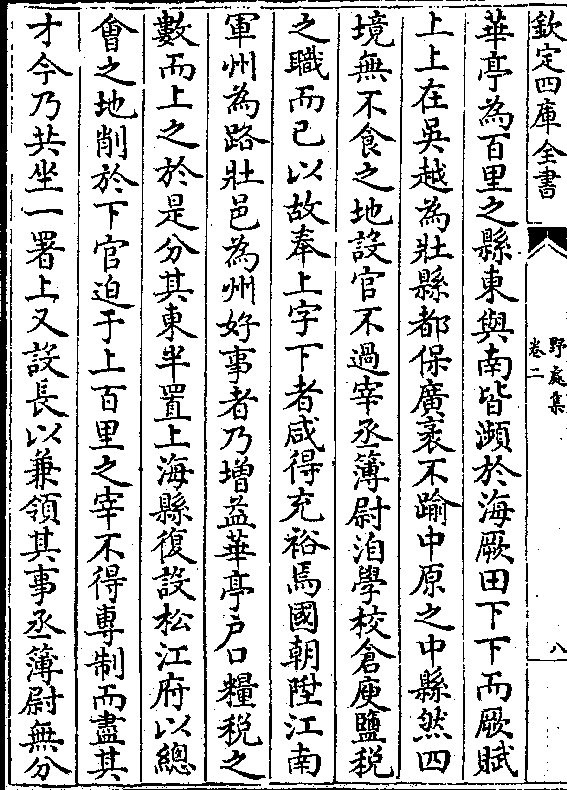 欽定四庫全書
野處集
卷二
八
華亭為百里之縣東與南皆瀕於海厥田下下而厥賦
上上在吳越為壯縣都保廣袤不踰中原之中縣然四
境無不食之地設官不過宰丞簿尉洎學校倉庾鹽稅
之職而已以故奉上字下者咸得充裕焉國朝陞江南
軍州為路壯邑為州好事者乃増益華亭户口糧稅之
數而上之於是分其東半置上海縣復設松江府以總
㑹之地削於下官迫于上百里之宰不得專制而盡其
才今乃共坐一署上又設長以兼領其事丞簿尉無分